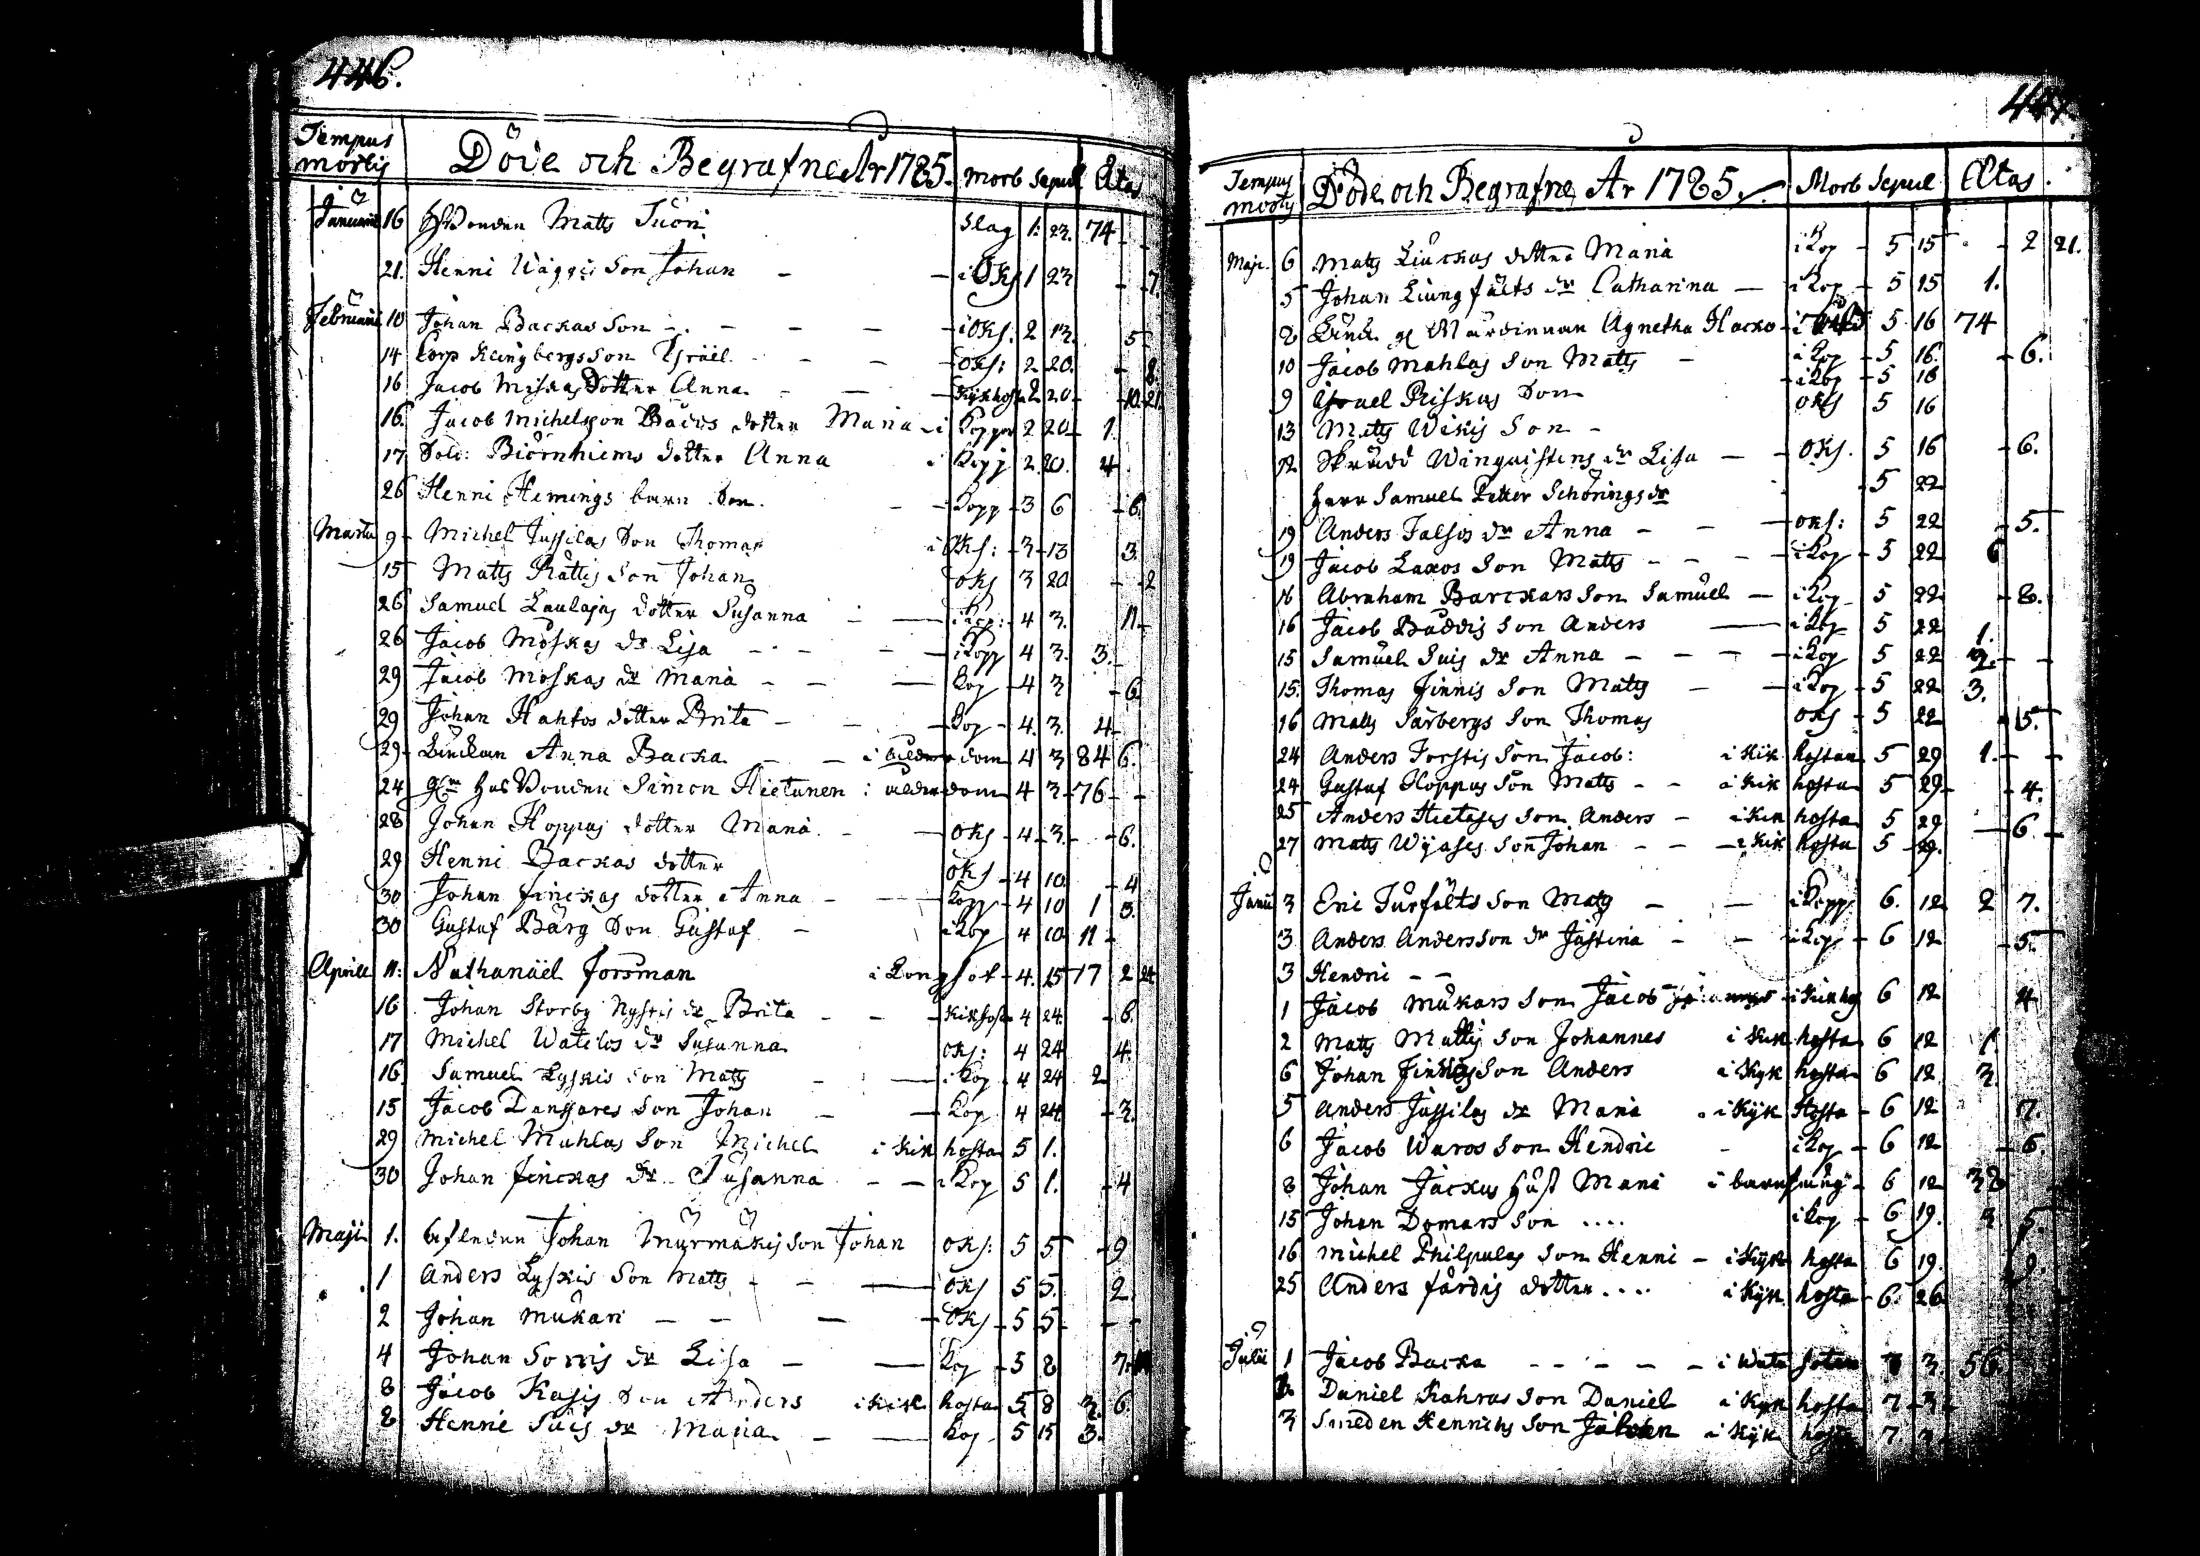 446.
Tempus mortis Döde och Begrafne År 1785. Morb Sepul Ætas
Januarii 16 Matts Tuori Slag 1. 23. 74 - -
21. Henni Wäggis Son Johan - - i Oks 1 23 - 7.
Februarii 10 Johan Backas Son - - - - i Oks: 2 13. 5
14 Corp Klingbergs Son Isräel - - Oks: 2 20. - 8.
16 Jacob Miskas Dotter Anna - - Kikhosta 2 20 - 10. 21.
16. Jacob Michelsson dotter Maria - i Koppor 2 20 1.
17 Sold: Biörnhiems dotter Anna i Kopp 2. 20. 4
26 Henni Hemings barn Son - - Kopp - 3 6 - 6.
Martii 9 - Michel Jussilas Son Thomas i Oks: - 3 - 13 3.
15 Matts Rättis Son Johan Oks 3 20 - - 2
26 Samuel Laulajas dotter Susanna - - i Kop: - 4 3. 11 -
26 Jacob Moskas dr Lisa - - - - i Kopp 4 3. 3. -
29 Jacob Moskas dr Maria - - - Kop - 4 3 - 6
29 Johan Hahtos dotter Brita - - Kop - 4. 3. 4 -
29 - Änckan Anna Backa - - i ålderdom 4 3 84 6.
24 Simon Hietanen i ålderdom 4 3 - 76 - -
28 Johan Hoppas dotter Maria - - Oks - 4 - 3 - - 6.
29 Henni Backas dotter Oks - 4 10 - 4
30 Johan Finckas dotter Anna - - Kopp - 4 10 1 3.
30 Gustaf Bärg Son Gustaf - i Kop 4 10 11 -
Aprill 11: Nathanäel Forsman i Longsot - 4. 15 17 2 24
16 Johan Storby Nystis dr Brita - - - Kikhosta 4 24. - 6.
17 Michel dr Susanna Oks: 4 24 4.
16 Samuel Lyskis Son Matts - - i Kop - 4 24 2
15 Jacob Danssares Son Johan - - Kop. 4 24. - 3.
29 Michel Mahlas Son Michel i Kik hosta 5 1.
30 Johan Finckas dr Susanna - - i Kop 5 1. - 4
Maji 1. Johan Murmäkis Son Johan Oks: 5 5 - 9
1 Anders Lyskis Son Matts - - - Oks 5 5. 2.
2 Johan Mukari - - - - Oks - 5 5 - - -
4 Johan Sorris dr Lisa - - Kop - 5 8 7.
8 Jacob Kasis Son Anders i Kik hosta 5 8 3. 6.
8 Henni Suis dr Maria - - Kop - 5 15 3.
Tempus mortis Döde och Begrafne År 1785. Morb Sepul Ætas.
Maji. 6 Matts Luckas dotter Maria i Kop - 5 15 - 2 21.
5 Johan Liungfälts dr Catharina - i Kop - 5 15 1.
8 Agnetha Hacko - 5 16 74
10 Jacob Mahlas Son Matts - i Kop - 5 16. - 6.
9 Israel Riskas Son - i Kop - 5 16
13 Matts Wikis Son - Oks 5 16
12 Skrädd Winquistens dr Lisa - - Oks. 5 16 - 6.
Herr Samuel Petter Schörings dr - 5 22
19 Anders Falsis dr Anna - - - Oks: 5 22 - 5.
19 Jacob Laxos Son Matts - - - i Kop - 5 22 6
16 Abraham Barckars Son Samuel - i Kop - 5 22 - 8.
16 Jacob Son Anders - i Kop 5 22 1.
15 Samuel Suis dr Anna - - - - i Kop 5 22 2. - -
15. Thomas Finnis Son Matts - - i Kop - 5 22 3.
16 Matts Särbergs Son Thomas Oks - 5 22 - 5.
24 Anders Forstis Son Jacob: i Kik hostan 5 29 1. - -
24 Gustaf Hoppus Son Matts - - i Kik hosta 5 29 - - 4.
25 Anders Son Anders - i Kik hosta 5 29 - 6 -
27 Matts Wijases Son Johan - - - i Kik hosta 5 - 29.
Junii 3 Eric Turfälts Son Matts - - i Kopp 6. 12 2 7.
3 Anders Andersson dr Justina - - i Kop - 6 12 - 5.
3 Hendri - -
1 Jacob Mukars Son Jacob i Kik ho 6 12 4
2 Matts Mattis Son Johannes i Kik hosta 6 12 1.
6 Johan Son Anders i Kyk hosta 6 12 3.
5 Anders Jussilas dr Maria i Kyk hosta - 6 12 7.
6 Jacob Waros Son Hendric - i Kop - 6 12 - 6.
8 Johan Jackus Hust Maria i barnsäng - 6 12 38
15 Johan Domars Son .... i Kop - 6 19. 5.
16 Michel Philpulas Son Henni - i Kyk hosta 6 19. 9.
25 Anders Färdis dotter .... i Kyk hosta - 6. 26
Julii 1 Jacob Backa - - - - - i 7 3. 56.
Daniel Rahras Son Daniel i Kyk hosta 7 - 3 -
3 Smeden Hennichs Son i Kyk hosta 7. 3.